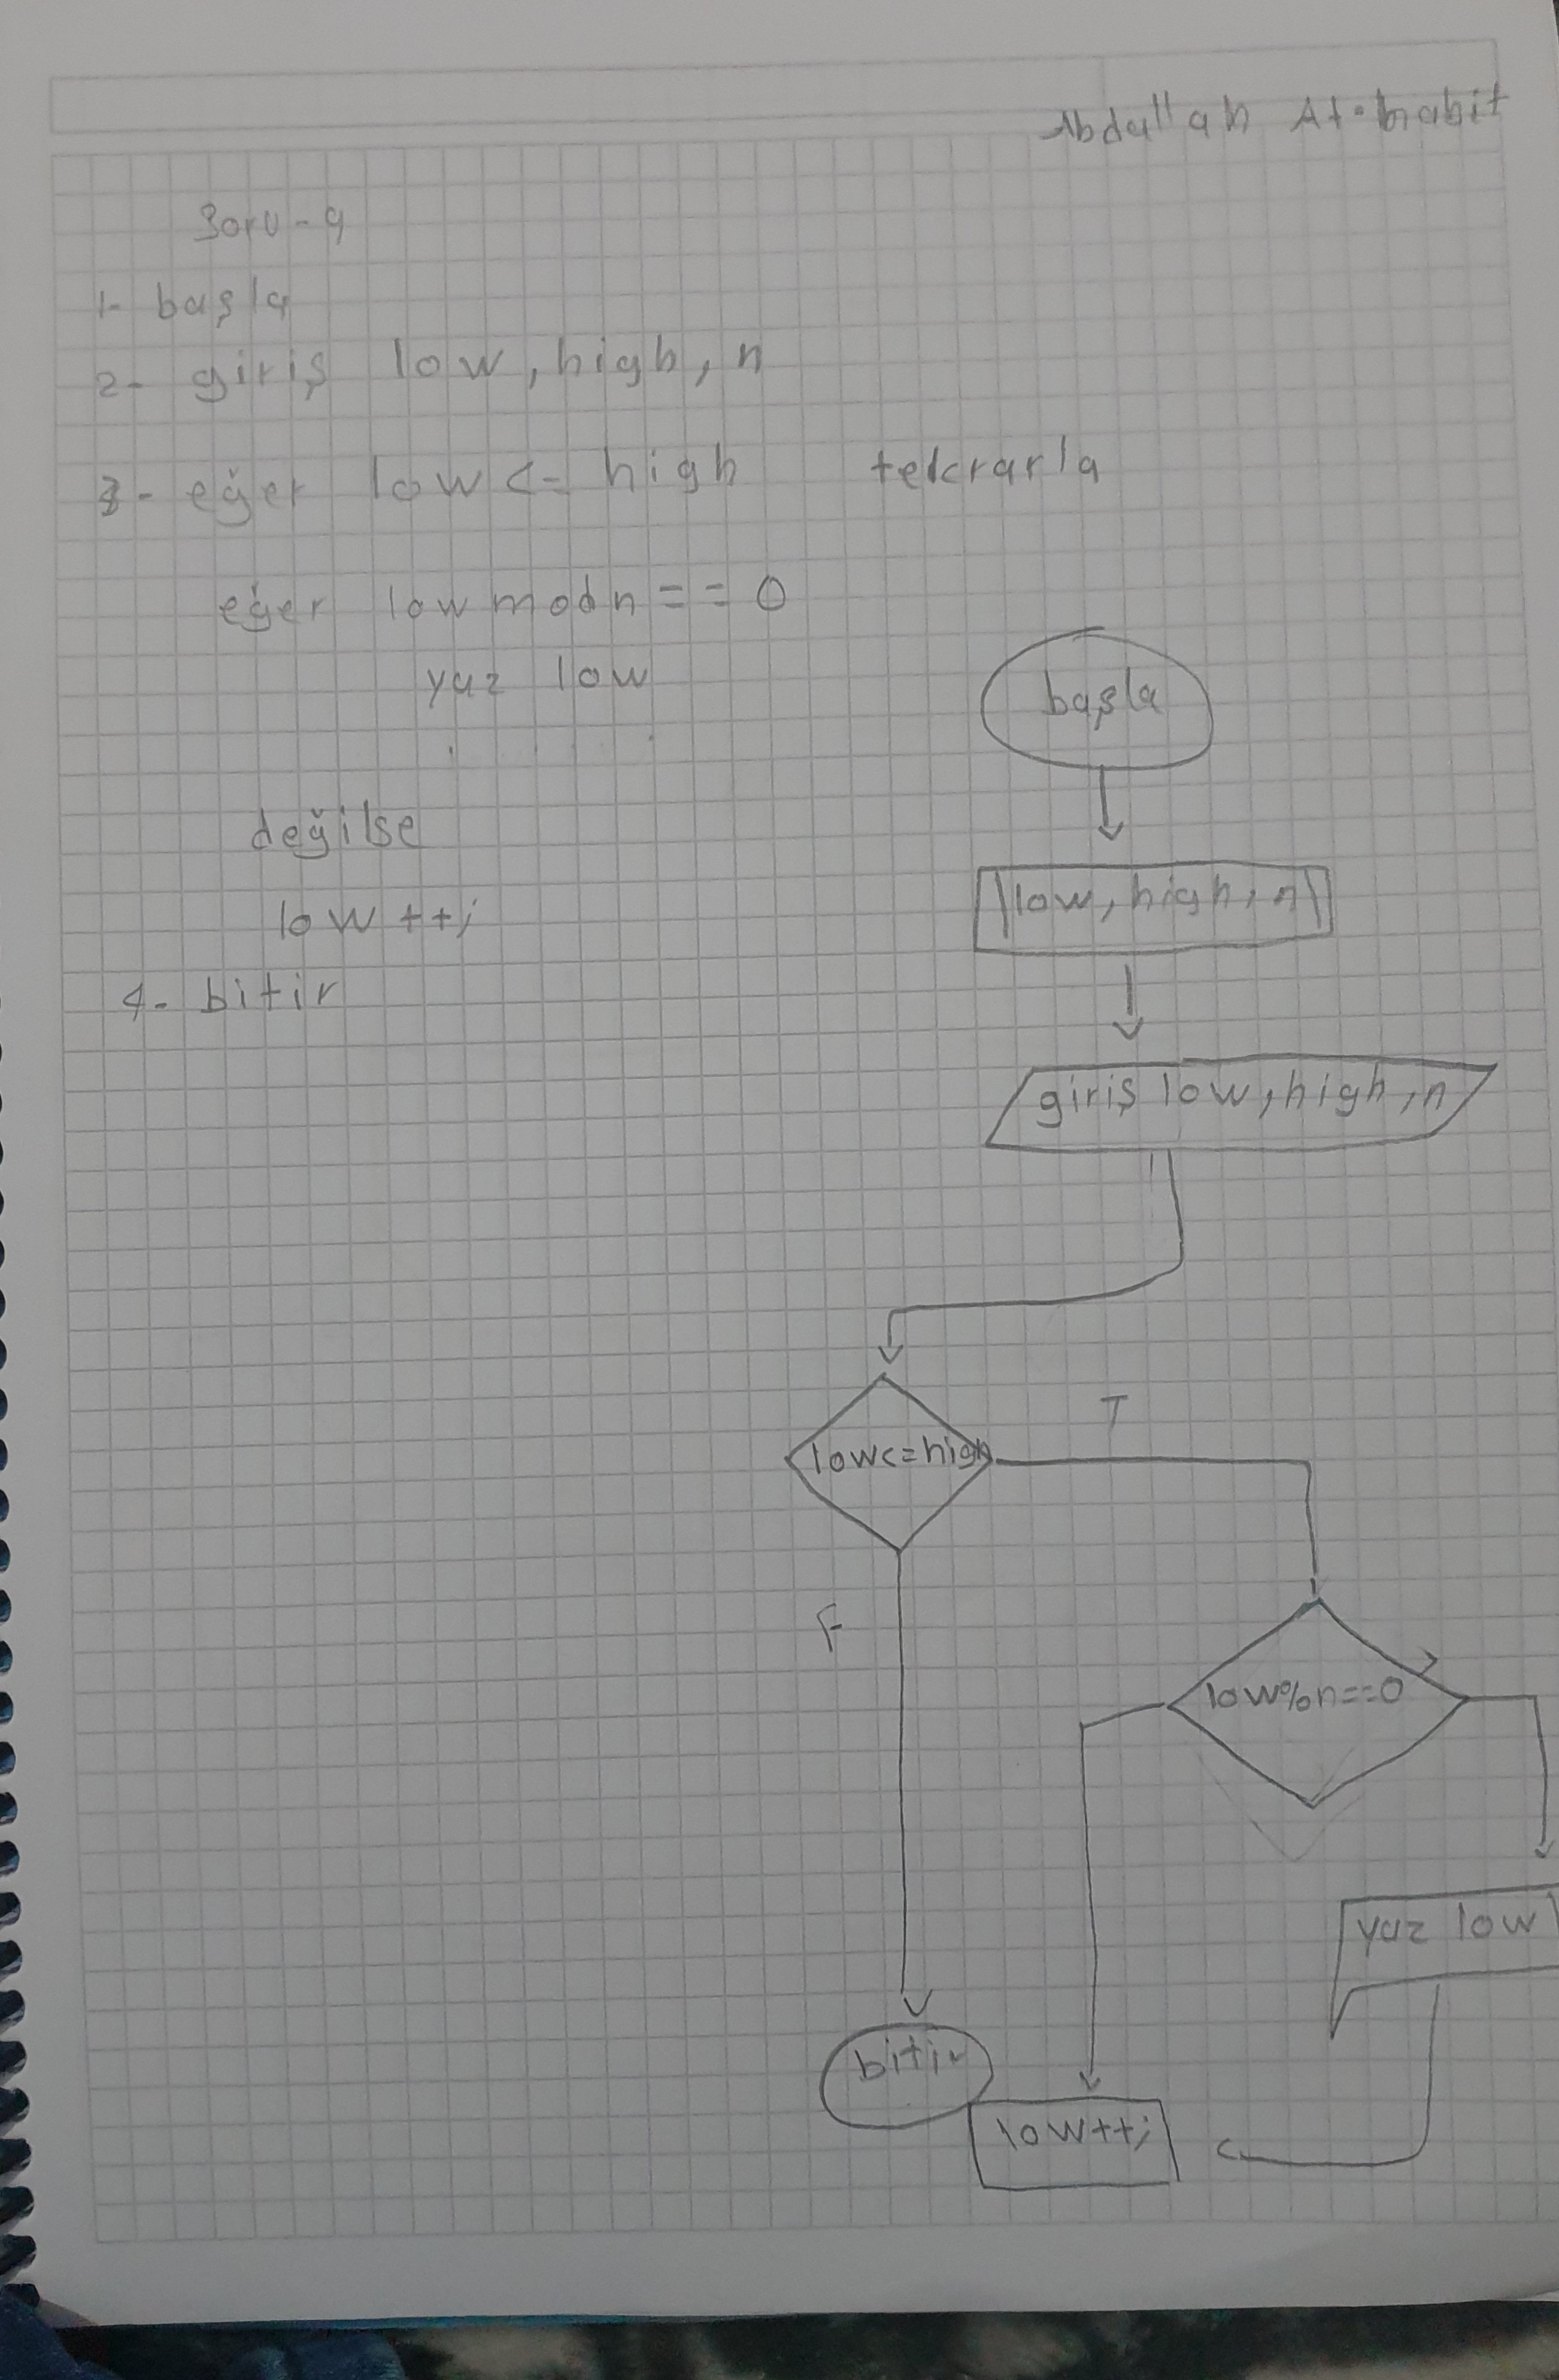 Abdallah
Soru-9
1- başla
2- giriş low, high, n
3- eğer low <= high tekrarla
eğer low mod n == 0
yaz low
değilse
low ++;
4- bitir
başla
low, high, n
giriş low, high, n
low<=high
T
F
low%n==0
yaz low
bitir
low++;